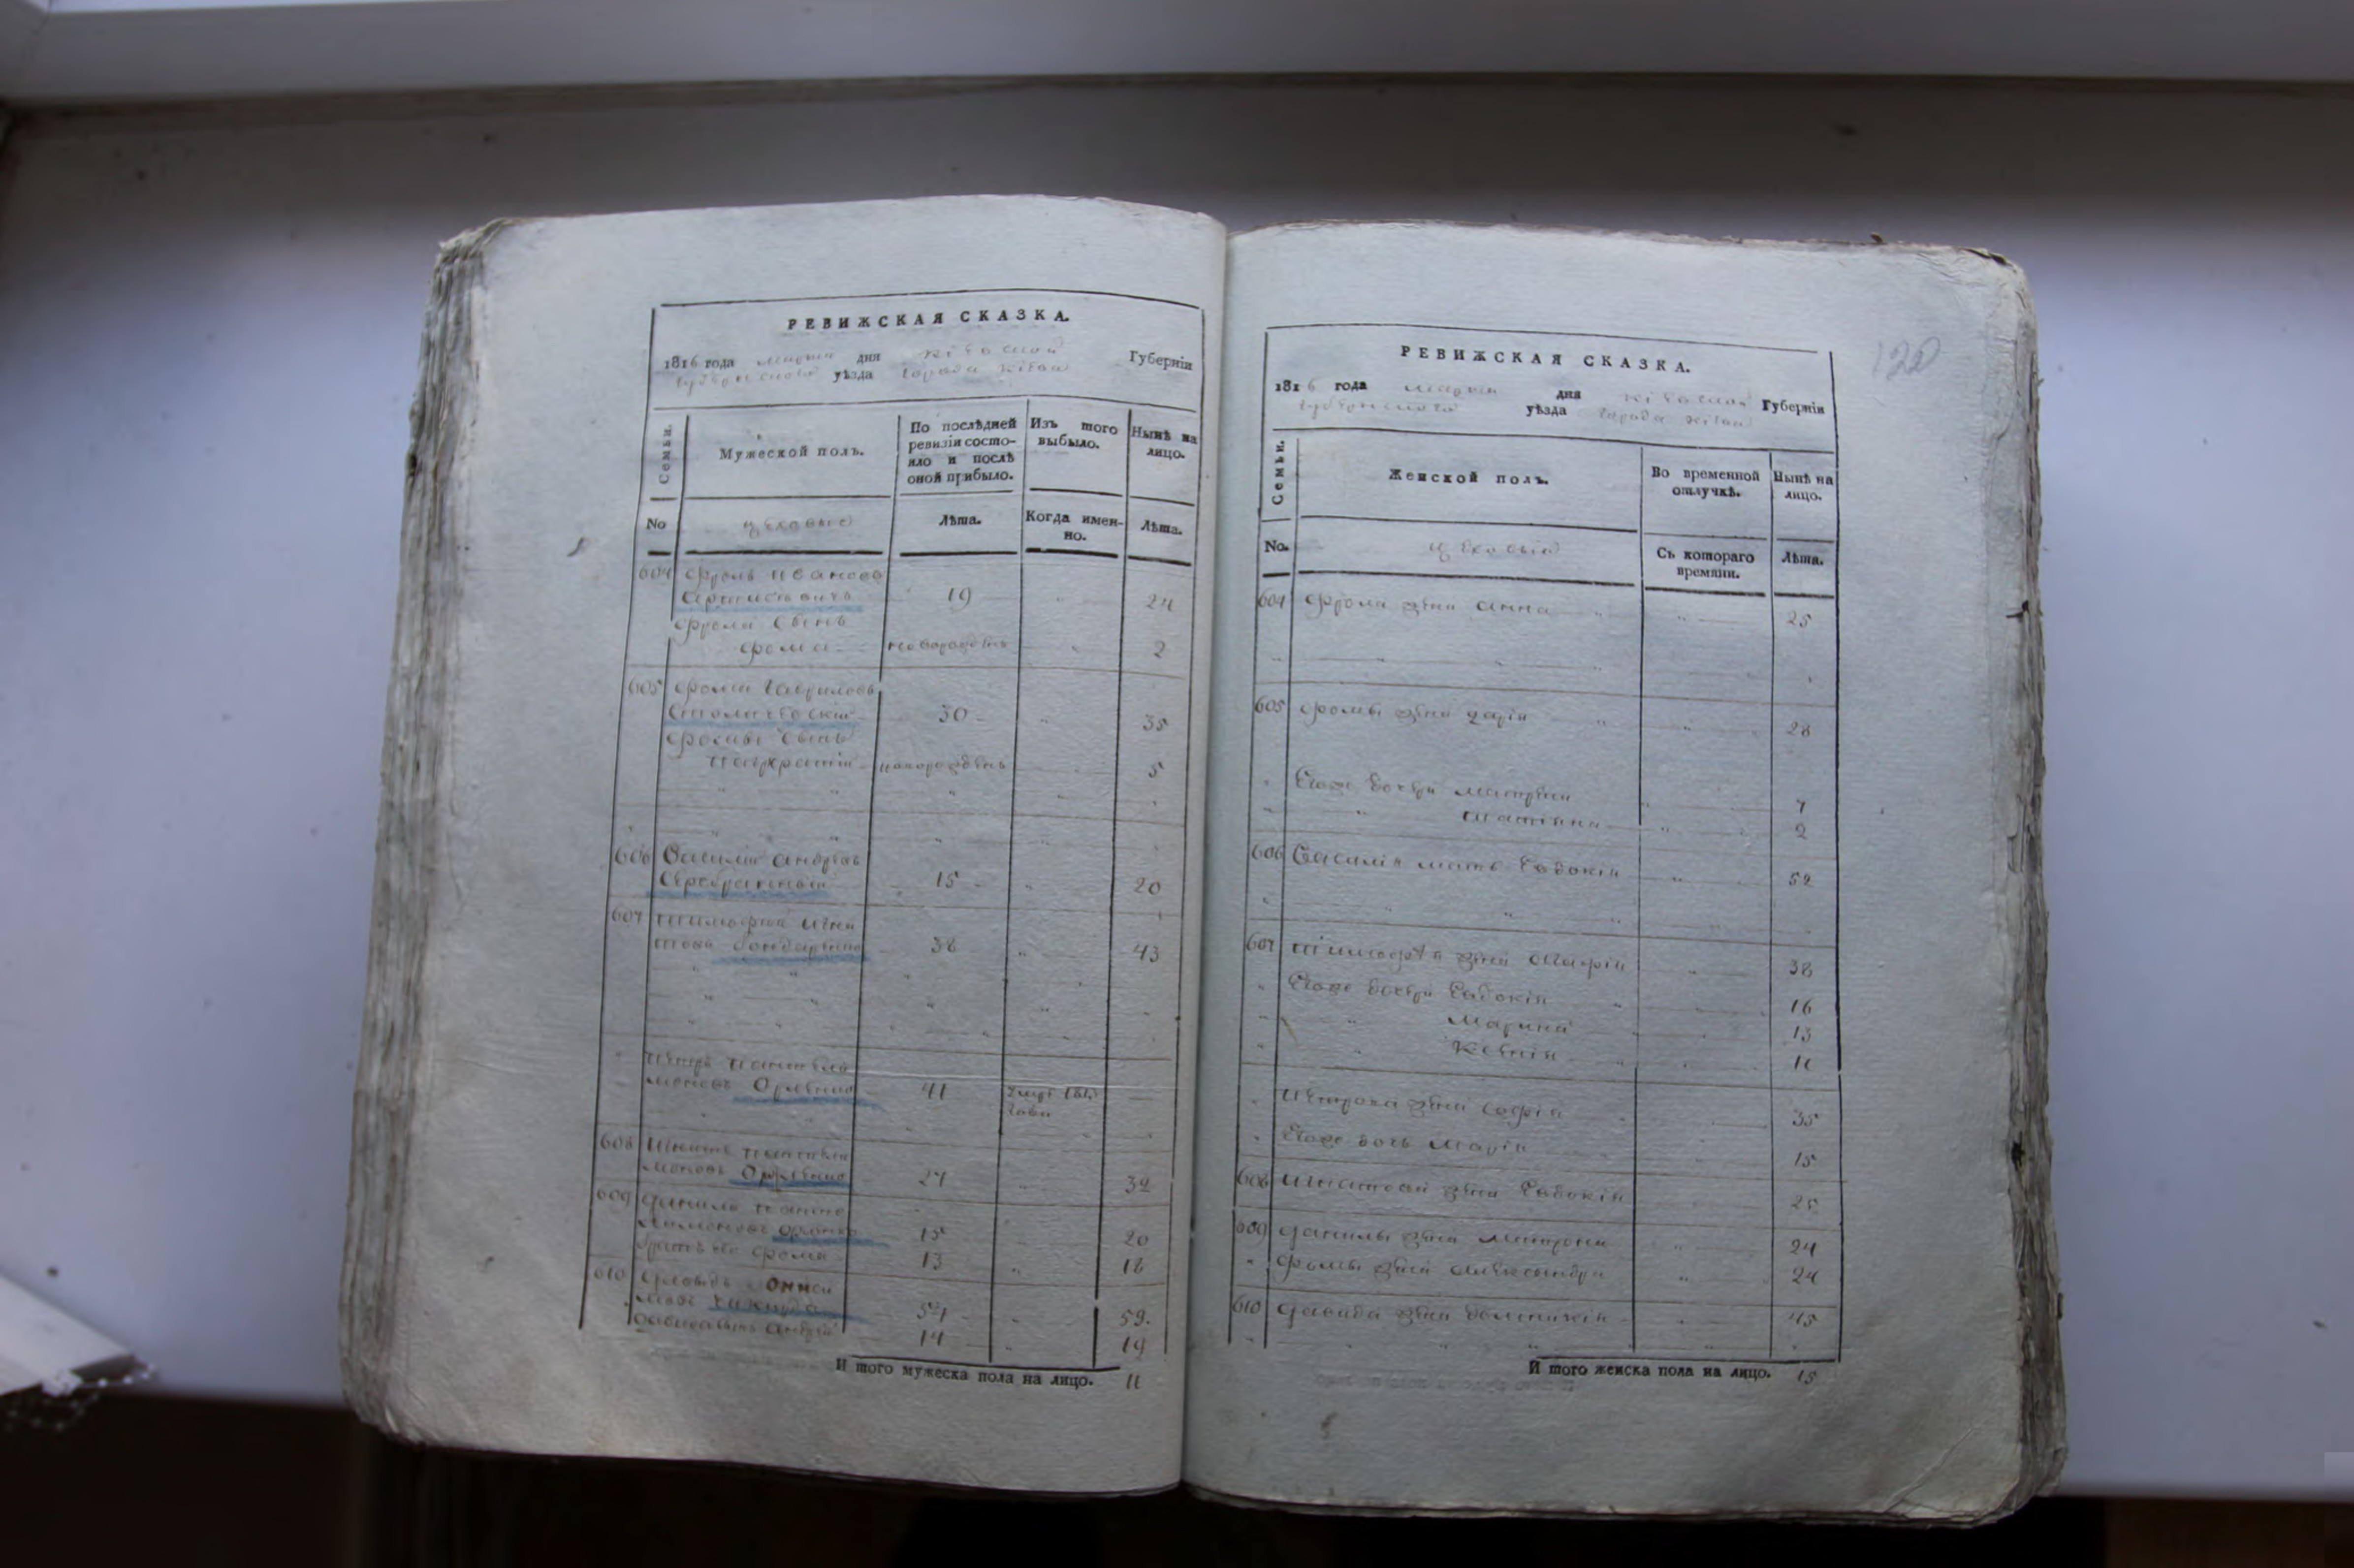 РЕВИЖСКАЯ СКАЗКА.
1816 года марта дня Кіевской Губерніи
губернскаго уѣзда города Кіева
Семьи.
Мужеской полъ.
По послѣдней ревизіи состояло и послѣ оной прибыло.
Изъ того выбыло.
Нынѣ на лицо.
No
цеховые
Лѣта.
Когда именно.
Лѣта.
604 Фролъ Иановъ
19 24
Фрола сынъ
Фома новорожденъ 2
605 Фома Гавриловъ
30 35
Фомы сынъ
новорожденъ 5
606 Василій Андреевъ
Серебрянный 15 20
607 Тимофей Игна
товъ Бондаренко 38 43
Петръ Пантеле
моновъ Орленко 41
года
608 Игнатъ Пантеле
моновъ Орленко 27 32
609 Данило Панте
лимоновъ Орленко 15 20
братъ его Фома 13 18
610 Давыдъ
54 59.
Андрей 14 19
И того мужеска пола на лицо. 11
120
РЕВИЖСКАЯ СКАЗКА.
1816 года марта дня Кіевской Губерніи
губернскаго уѣзда города Кіева
Семьи.
Женской полъ.
Во временной отлучкѣ.
Нынѣ на лицо.
No.
цеховыя
Съ котораго времяни.
Лѣта.
604 Фрола жена Анна 25
605 Фомы жена Дарія 28
Егоже дочери Матрена 7
Татіянна 2
606 Василія мать Евдокія 52
607 Тимофея жена Агафія 38
Егоже дочери Евдокія 16
Марина 13
Ксенія 11
Петрова жена Софія 35
Егоже дочь Марія 15
608 Игнатова жена Евдокія 25
609 Данилы жена Матрона 24
Фомы жена Александра 24
610 Давида жена Домникія 45
И того женска пола на лицо. 15